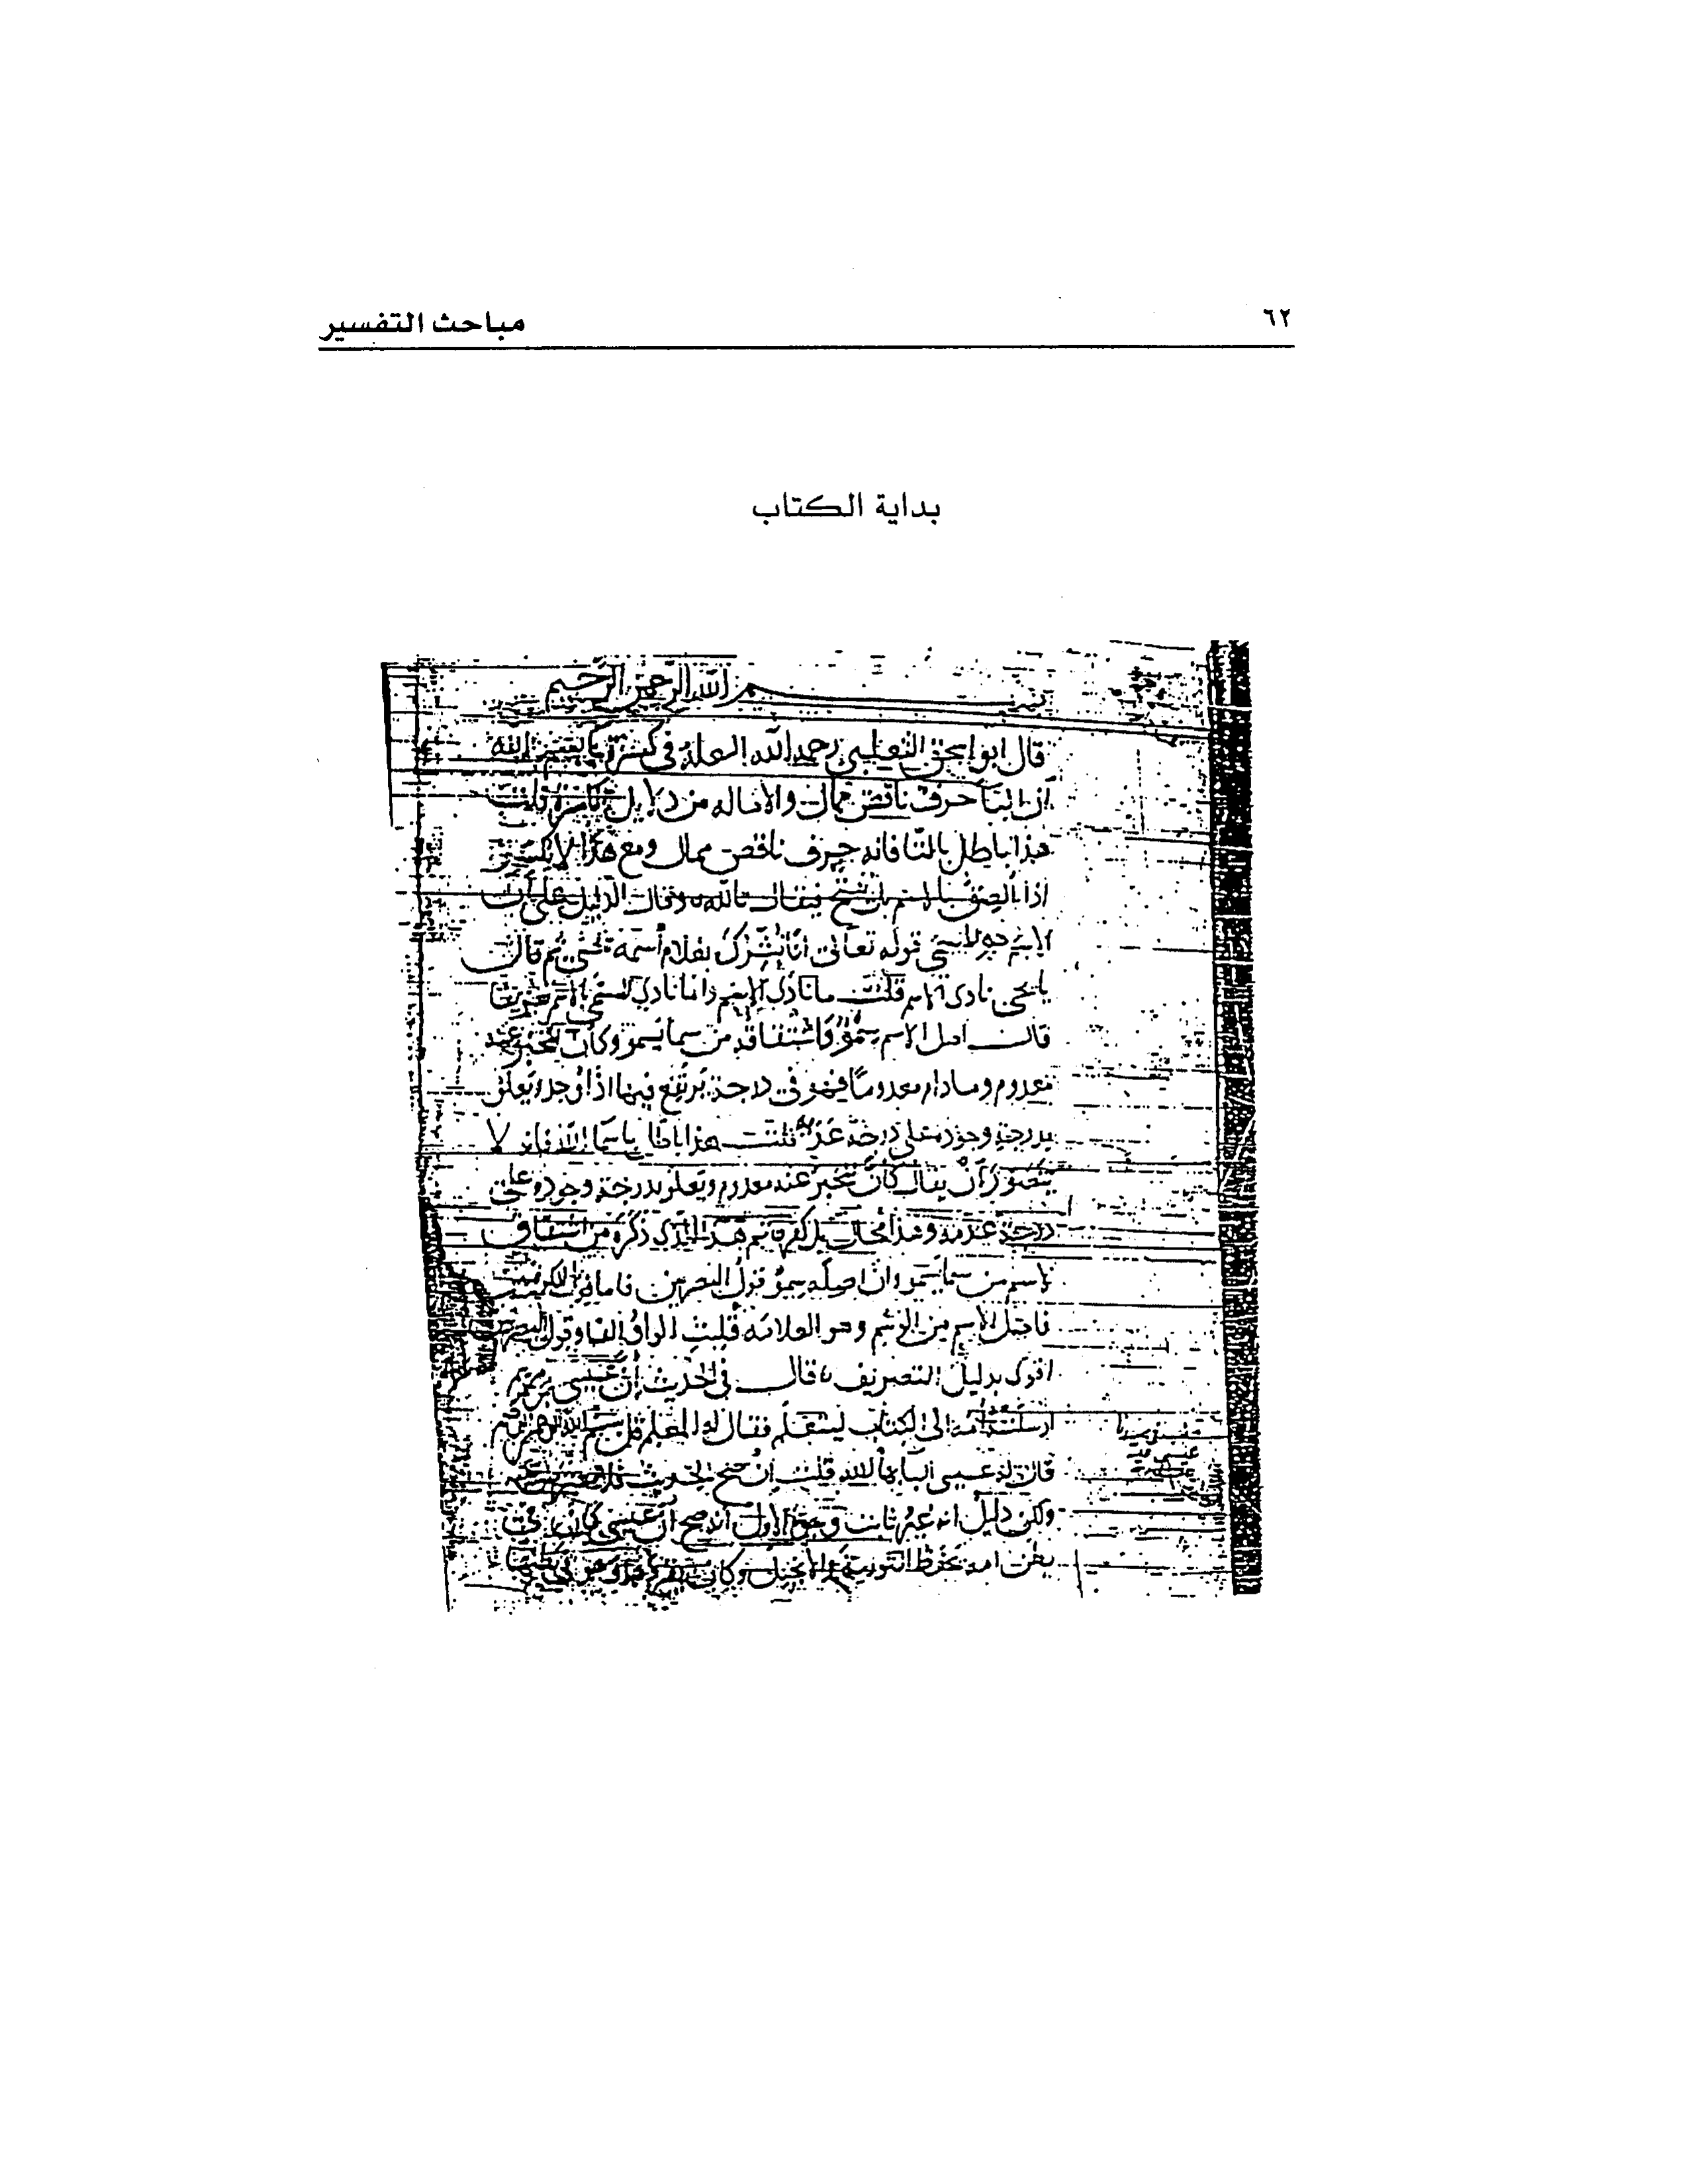 ٦٢ مباحث التفسير
بداية الكتاب
بسم الله الرحمن الرحيم
قال ابو اسحق الثعلبي رحمه الله العلة في كسرة باء بسم الله
ان البا حرف ناقص ممال والاماله من دلايل الكسرة قلت
هذا باطل بالتا فانه حرف ناقص ممال ومع هذا لا يكسر
اذا الصق بالاسم بل يفتح فيقال تالله وقال الدليل على ان
الاسم هو المسمى قوله تعالى انا نبشرك بغلام اسمه يحيى ثم قال
يا يحيى نادى الاسم قلت ما نادى الاسم وانما نادى المسمى
قال اصل الاسم سمو واشتقاقه من سما يسمو وكان المخبر عنه
معدوم وما دام معدوما فهو في درجة يرتفع فيها اذا وجد ويعلو
بدرجة وجوده على درجة عدمه قلت هذا باطل باسما الله فانه لا
يتصور ان يقال كان المخبر عنه معدوم ويعلو بدرجة وجوده على
درجة عدمه وهذا محال بل كفر ثم هذا الذي ذكره من اشتقاق
الاسم من سما يسمو وان اصله سمو قول البصريين فاما قول الكوفيين
فاصل الاسم من الوسم وهو العلامة قلبت الواو الفا وقول البصريين
اقوى بدليل التصريف قال في الحديث ان عيسى بن مريم
ارسلته امه الى الكتاب ليتعلم فقال له المعلم قل بسم الله
قال له عيسى البا بها الله قلت ان صح الحديث
ولكن دليل انه غير ثابت الاول انه صح ان عيسى كان في
بطن امه يحفظ التورية والانجيل وكان